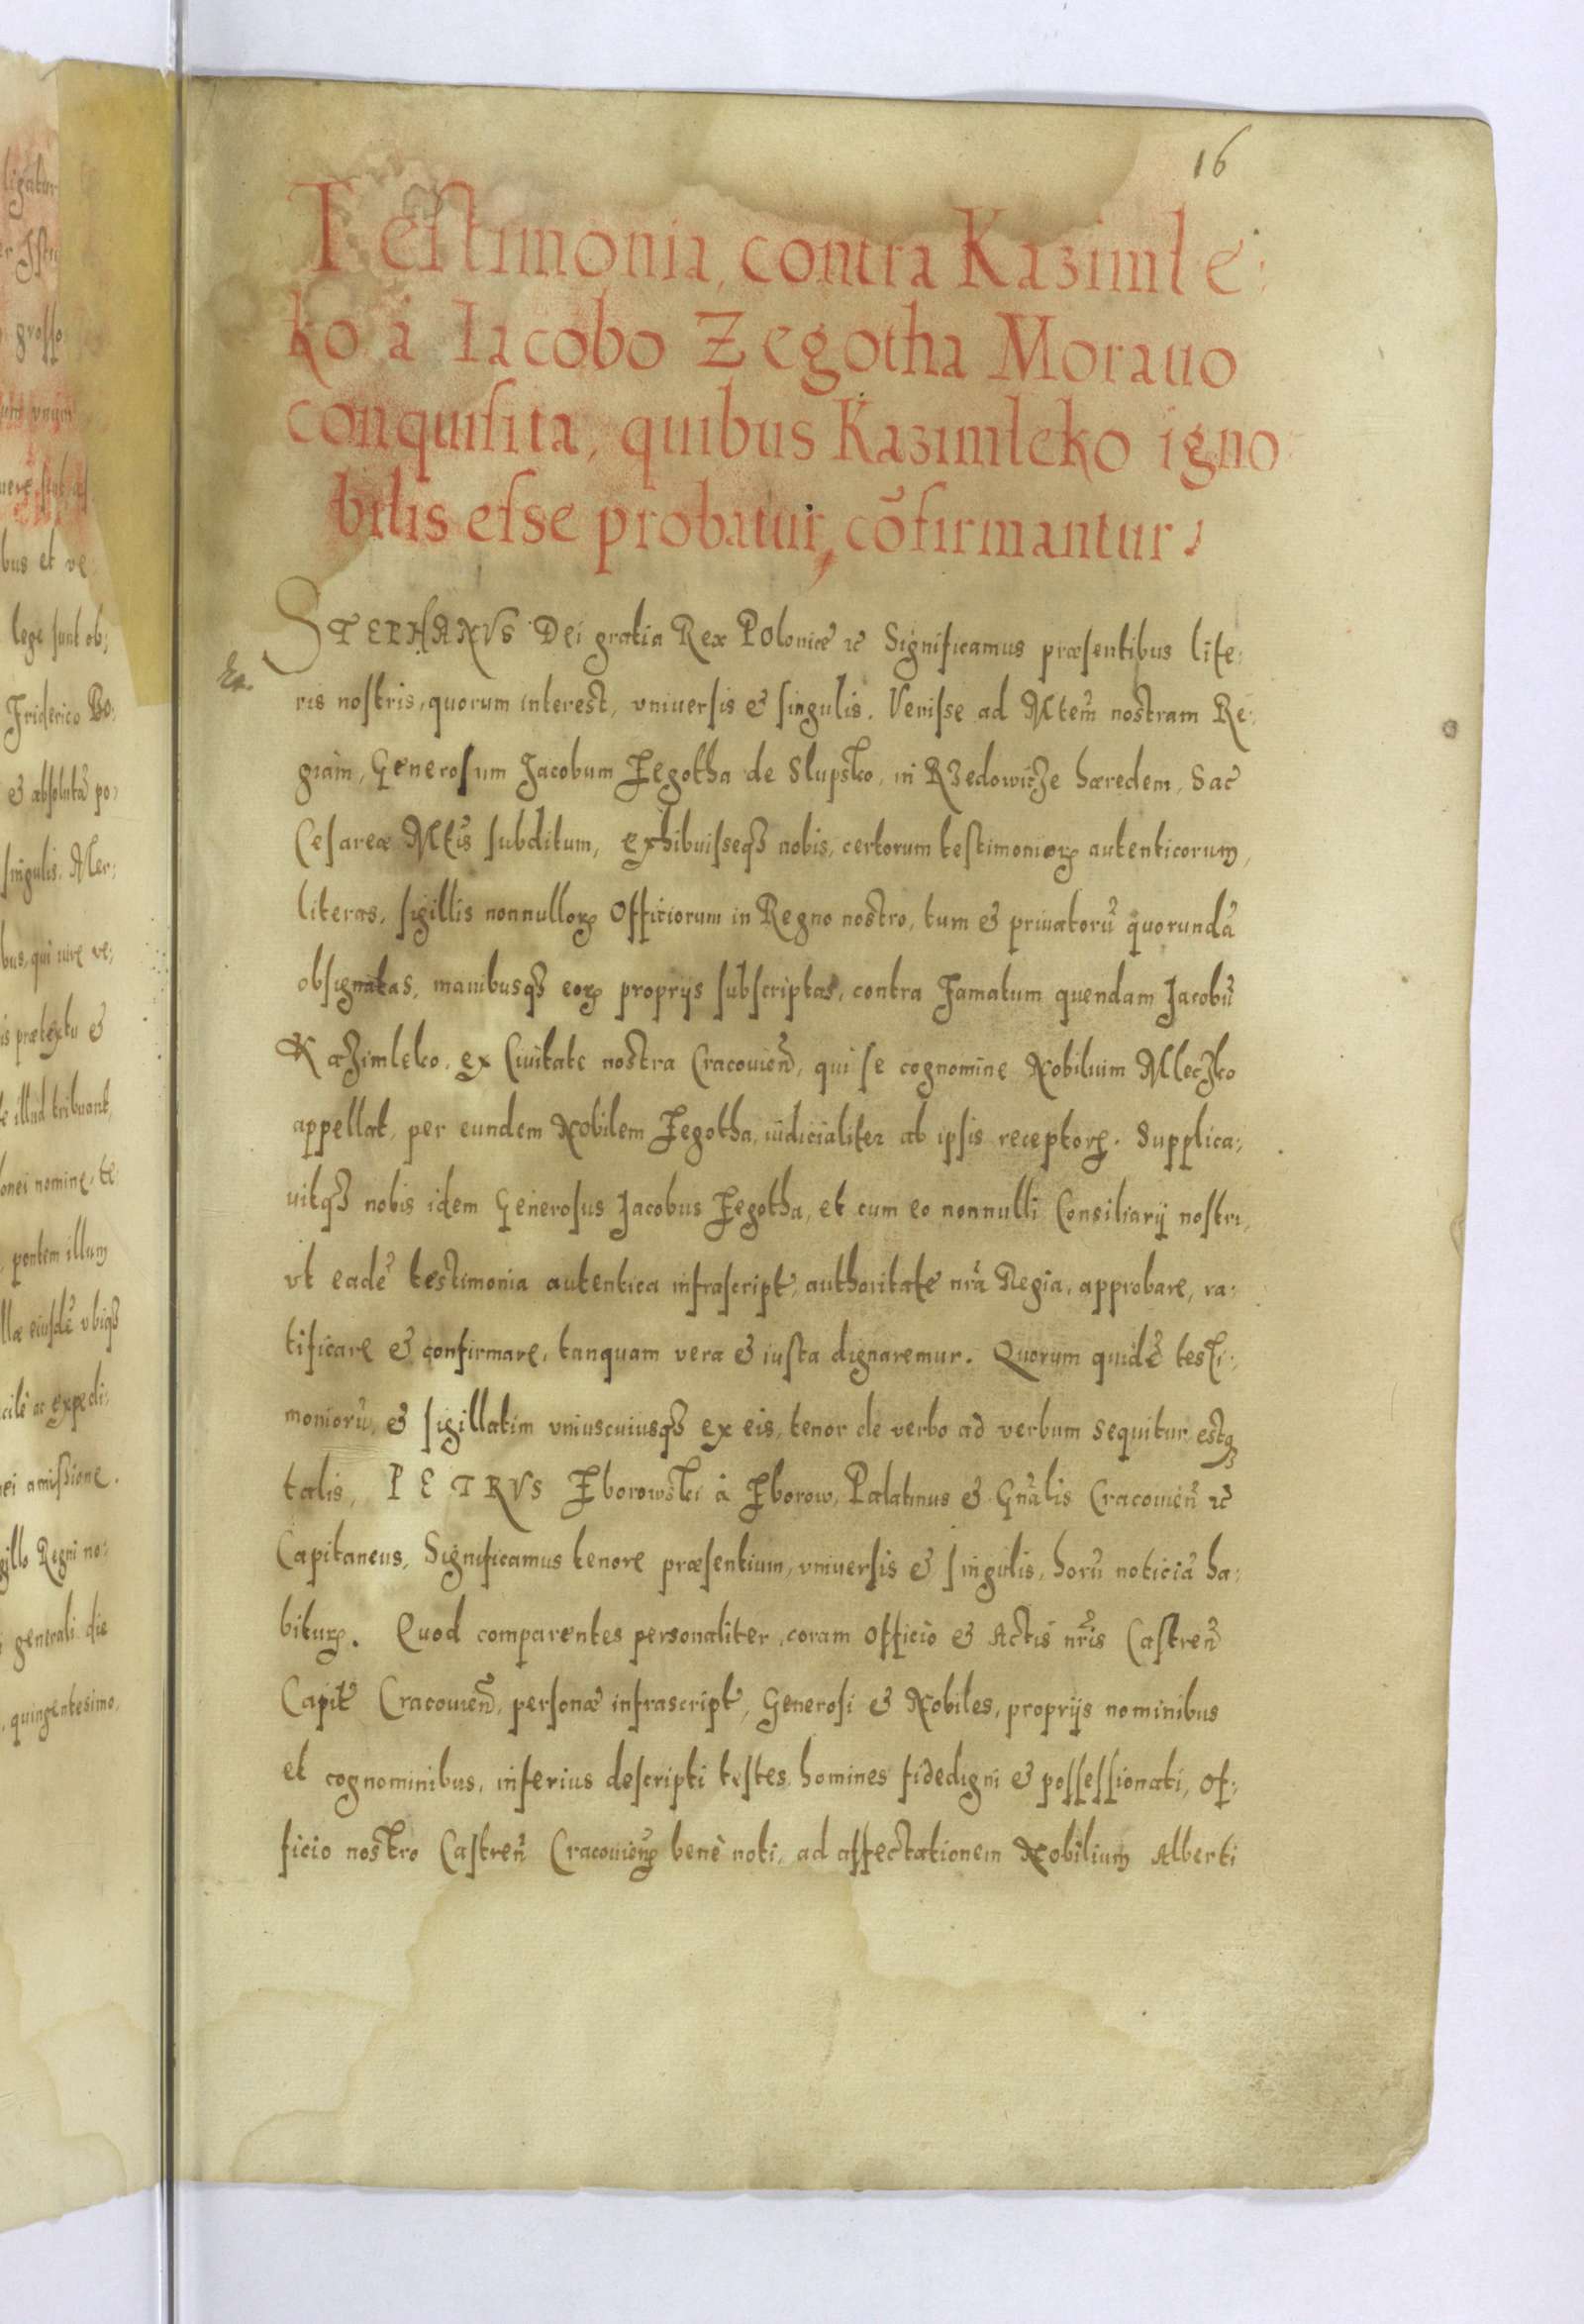 16
Testimonia, contra Kazimle:
ko a Iacobo Zegotha Morauo
conquisita, quibus Kazimleko igno
bilis esse probatur, cõfirmantur
STEPHANVS Dei gratia Rex Poloniæ &c Significamus præsentibus lite:
ris nostris, quorum interest, vniuersis & singulis. Venisse ad Mtem̃ nostram Re:
giam, Generosum Jacobum Zegotha de Slupsko, in Rzedowicze hæredem, Sac̃
Cesareæ Mtis̃ subditum, exhibuisseqꝫ nobis, certorum testimoniorꝝ autenticorum,
literas, sigillis nonnullorꝝ Officiorum in Regno nostro, tum & priuatorũ quorundã
obsignatas, manibusqꝫ eorꝝ proprijs subscriptas, contra Famatum quendam Jacobũ
Kazimleko, ex Ciuitate nostra Cracouień, qui se cognomine Nobilium Mleczko
appellat, per eundem Nobilem Zegotha, iudicialiter ab ipsis receptorꝝ. Supplica:
uitqꝫ nobis idem Generosus Jacobus Zegotha, et cum eo nonnulli Consiliarij nostri,
vt eadẽ testimonia autentica infrascript, authoritate nr̃a Regia, approbare, ra:
tificare & confirmare, tanquam vera & iusta dignaremur. Quorum quidẽ testi:
moniorũ, & sigillatim vniuscuiusqꝫ ex eis, tenor de verbo ad verbum sequitur estqꝫ
talis, PETRVS Zborowski à Zborow, Palatinus & Gñalis Cracouień &c
Capitaneus, Significamus tenore præsentium, vniuersis & singulis, horũ noticiã ha:
biturꝝ. Quod comparentes personaliter, coram Officio & Actis nr̃is Castreñ
Capit Cracouień, personæ infrascript, Generosi & Nobiles, proprijs nominibus
et cognominibus, inferius descripti testes homines fidedigni & possessionati, Of:
ficio nostro Castreñ Cracouień benè noti, ad affectationem Nobilium Alberti